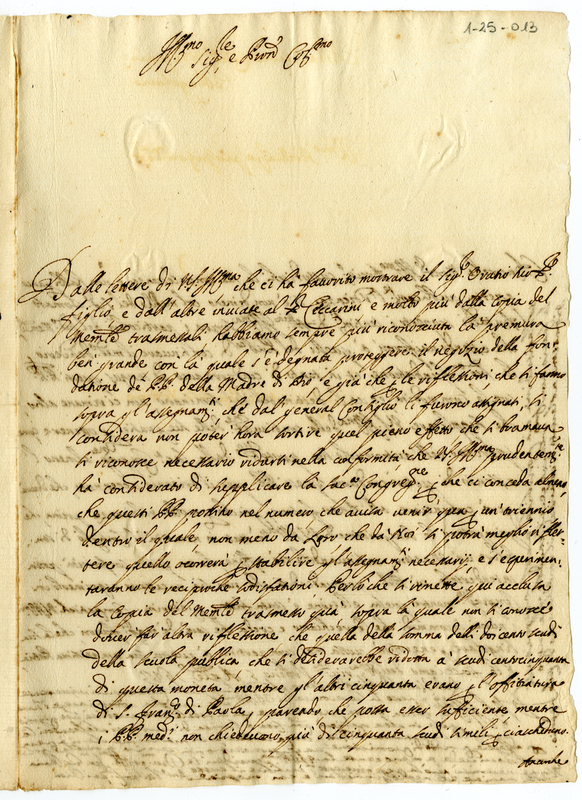 1-25-013
Ill.mo
Sig.re e Pron Col.mo
Dalle lettere di VS Ill.ma che ci ha favorito mostrare il Sig.r Oratio suo
figlio, e dall'altre inviate al Ceccarini e molto più dalla copia del
Memle trasmessali habbiamo sempre più riconosciuta la premura
ben grande con la quale s'è degnata proteggere il negozio della fon
datione de PP. della Madre di Dio, e già che le riflessioni che si fanno
sopra gl'assegnam.ti che dal general Consiglio li furono assignati, si
considera non poter hora sortire quel pieno effetto che si bramava
si riconosce necessario ridursi nella conformità che VS Ill.ma prudentem.te
ha considerato di supplicare la Sac. Congreg.ne che ci conceda almeno
che questi PP. potino nel numero che aviva venir qua un triennio
dentro il quale non meno da Loro che da Noi si potrà meglio riflet-
tere quello occorrerà stabilire gl'assegnam.ti necessarij, e s'esperimen-
taranno le reciproche sodisfationi. Perloche si rimette qui acclusa
la Copia del Memle trasmesso già sopra la quale non si conosce
dover far altra riflessione che quella della somma delli doicento scudi
della scuola publica che si desiderarebbe ridotta à scudi centocinquanta
di questa moneta, mentre gl'altri cinquanta erano l'offitiatura
di S. Franc.o di Paola, parendo che possa esser sufficiente mentre
i PP. med.i non chiedevono più di cinquanta scudi simili ciascheduno.
Ancorche